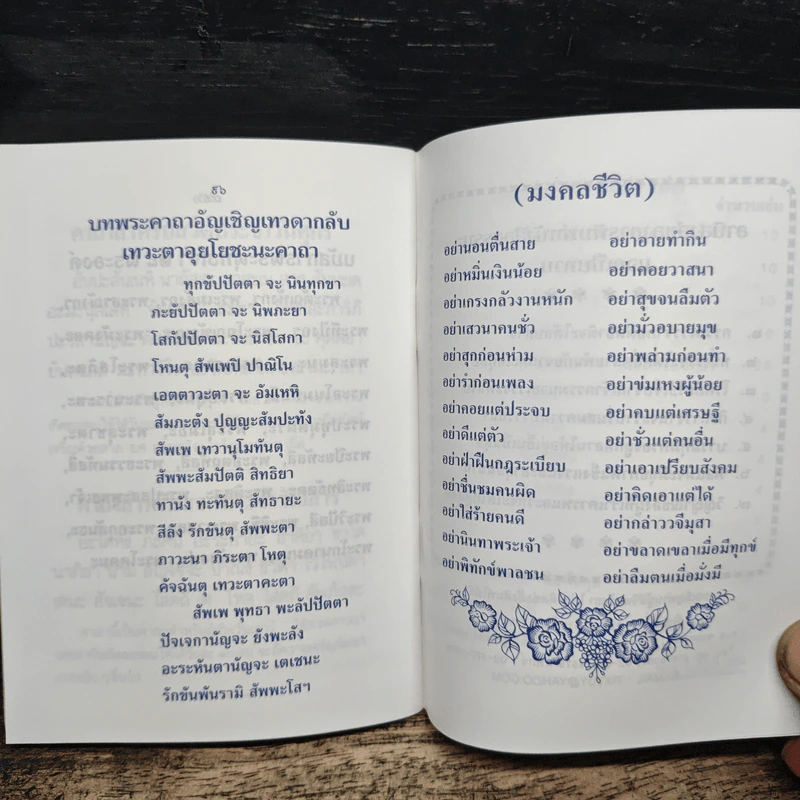 ๕๖
บทพระคาถาอัญเชิญเทวดากลับ
เทวะตาอุยโยชะนะคาถา
ทุกขัปปัตตา จะ นินทุกขา
ภะยัปปัตตา จะ นิพภะยา
โสกัปปัตตา จะ นิสโสกา
โหนตุ สัพเพปิ ปาณิโน
เอตตาวะตา จะ อัมเหหิ
สัมภะตัง ปุญญะสัมปะทัง
สัพเพ เทวานุโมทันตุ
สัพพะสัมปัตติ สิทธิยา
ทานัง ทะทันตุ สัทธายะ
สีลัง รักขันตุ สัพพะตา
ภาวะนา ภิระตา โหตุ
คัจฉันตุ เทวะตาคะตา
สัพเพ พุทธา พะลัปปัตตา
ปัจเจกานัญจะ ยังพะลัง
อะระหันตานัญจะ เตเชนะ
รักขันพันรามิ สัพพะโสฯ
(มงคลชีวิต)
อย่านอนตื่นสาย อย่าอายทำกิน
อย่าหมิ่นเงินน้อย อย่าคอยวาสนา
อย่าเกรงกลัวงานหนัก อย่าสุขจนลืมตัว
อย่าเสวนาคนชั่ว อย่ามั่วอบายมุข
อย่าสุกก่อนห่าม อย่าพล่ามก่อนทำ
อย่ารำก่อนเพลง อย่าข่มเหงผู้น้อย
อย่าคอยแต่ประจบ อย่าคบแต่เศรษฐี
อย่าดีแต่ตัว อย่าชั่วแต่คนอื่น
อย่าฝ่าฝืนกฎระเบียบ อย่าเอาเปรียบสังคม
อย่าชื่นชมคนผิด อย่าคิดเอาแต่ได้
อย่าใส่ร้ายคนดี อย่ากล่าววจีมุสา
อย่านินทาพระเจ้า อย่าขลาดเขลาเมื่อมีทุกข์
อย่าพิทักษ์พาลชน อย่าลืมตนเมื่อมั่งมี